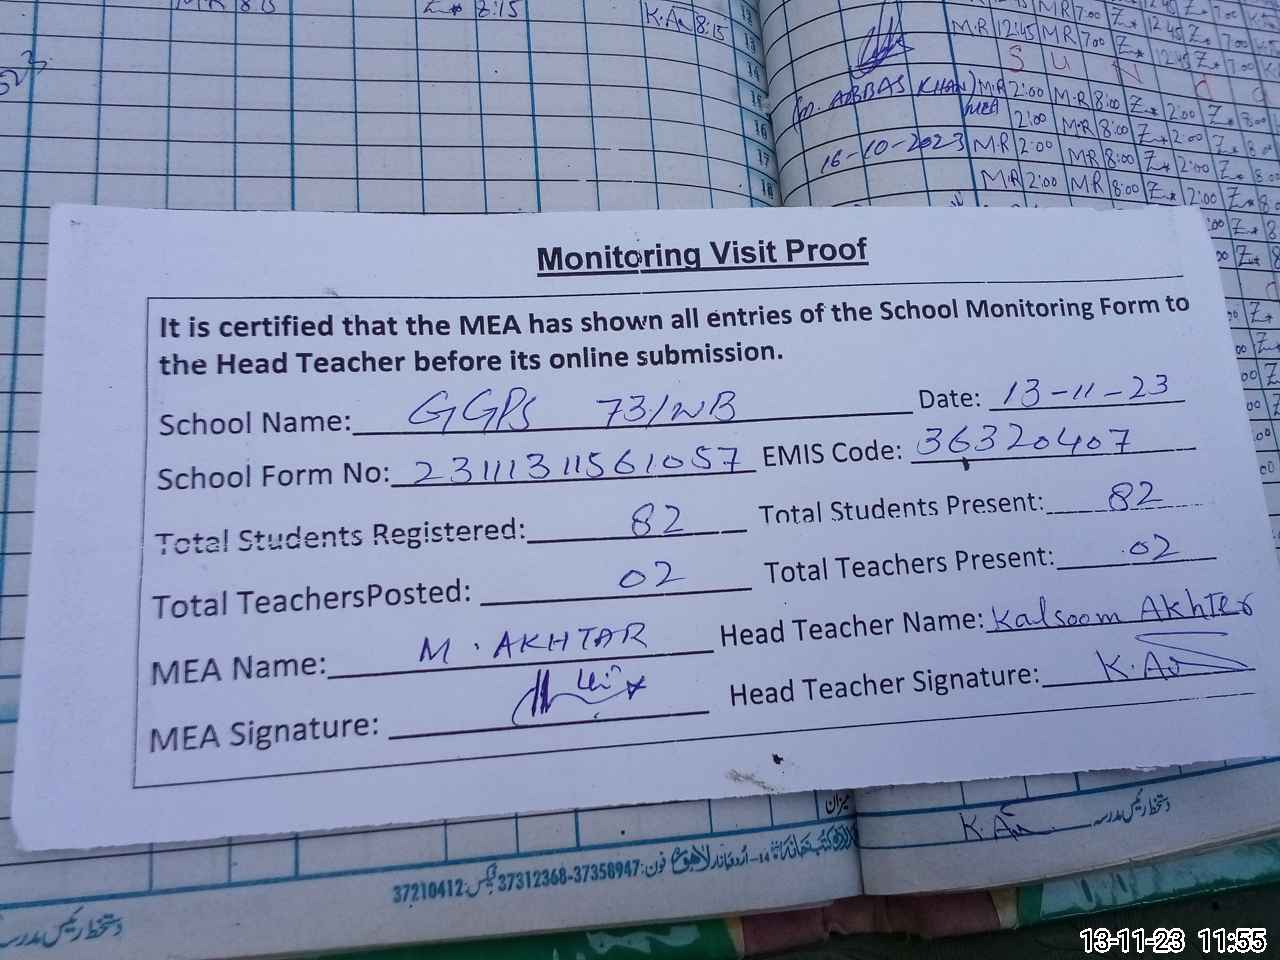 M.R 8:15 Z* 8:15 K.A 8:15
M.R 12:45 MR 7:00 Z* 12:45 Z* 7:00
S U N
(M. ABBAS KHAN) M.R 2:00 M.R 8:00 Z* 2:00 Z* 8:00
MEA 2:00 M.R 8:00 Z* 2:00 Z* 8:00
16-10-2023 M.R 2:00 MR 8:00 Z* 2:00 Z* 8:00
M.R 2:00 MR 8:00 Z* 2:00 Z* 8:0
Monitoring Visit Proof
It is certified that the MEA has shown all entries of the School Monitoring Form to
the Head Teacher before its online submission.
School Name: GGPS 73/WB Date: 13-11-23
School Form No: 23111311561057 EMIS Code: 36320407
Total Students Registered: 82 Total Students Present: 82
Total TeachersPosted: 02 Total Teachers Present: 02
MEA Name: M. AKHTAR Head Teacher Name: Kalsoom Akhter
MEA Signature: Head Teacher Signature: K.A
میزان
K.A دستخط رئیس مدرسہ
14-اردو بازار لاہور فون: 37358947-37312368 فیکس: 37210412
دستخط رئیس مدرسہ
13-11-23 11:55